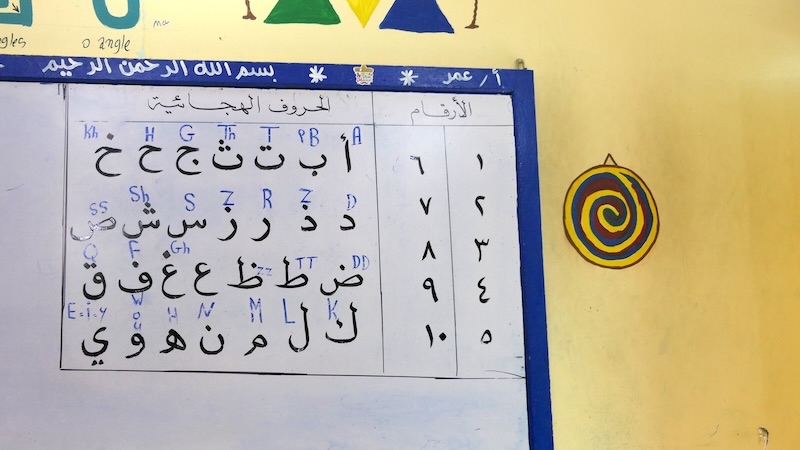 0 angle
بسم الله الرحمن الرحيم
أ/ عمر
الحروف الهجائية
الأرقام
A B T Th G H Kh
أ ب ت ث ج ح خ
١ ٦
D Z R Z S Sh SS
د ذ ر ز س ش ص
٢ ٧
DD TT ZZ Gh F Q
ض ط ظ ع غ ف ق
٣ ٨
٤ ٩
K L M N H W E-i-y
ك ل م ن ه و ي
٥ ١٠